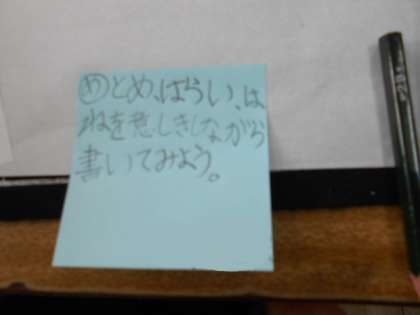 ㋱とめ、はらい、は
ねを意しきしながら
書いてみよう。